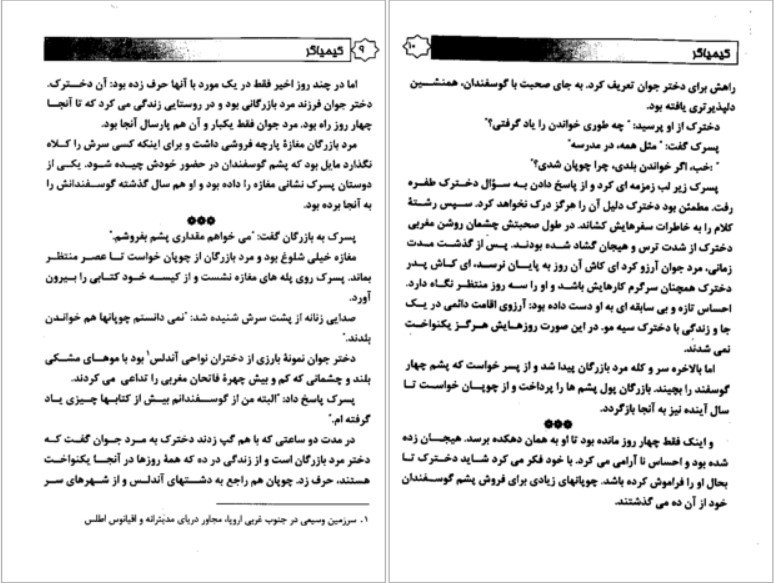 کیمیاگر ۹
اما در چند روز اخیر فقط در یک مورد با آنها حرف زده بود: آن دخترک.
دختر جوان فرزند مرد بازرگانی بود و در روستایی زندگی می کرد که تا آنجا
چهار روز راه بود. مرد جوان فقط یکبار و آن هم پارسال آنجا بود.
مرد بازرگان مغازة پارچه فروشی داشت و برای اینکه کسی سرش را کلاه
نگذارد مایل بود که پشم گوسفندان در حضور خودش چیده شود. یکی از
دوستان پسرک نشانی مغازه را داده بود و او هم سال گذشته گوسفندانش را
به آنجا برده بود.
***
پسرک به بازرگان گفت: "می خواهم مقداری پشم بفروشم."
مغازه خیلی شلوغ بود و مرد بازرگان از چوپان خواست تا عصر منتظر
بماند. پسرک روی پله های مغازه نشست و از کیسه خود کتابی را بیرون
آورد.
صدایی زنانه از پشت سرش شنیده شد: "نمی دانستم چوپانها هم خواندن
بلدند."
دختر جوان نمونة بارزی از دختران نواحی آندلس۱ بود با موهای مشکی
بلند و چشمانی که کم و بیش چهرة فاتحان مغربی را تداعی می کردند.
پسرک پاسخ داد: "البته من از گوسفندانم بیش از کتابها چیزی یاد
گرفته ام."
در مدت دو ساعتی که با هم گپ زدند دخترک به مرد جوان گفت که
دختر مرد بازرگان است و از زندگی در ده که همة روزها در آنجا یکنواخت
هستند، حرف زد. چوپان هم راجع به دشتهای آندلس و از شهرهای سر
۱. سرزمین وسیعی در جنوب غربی اروپا، مجاور دریای مدیترانه و اقیانوس اطلس
کیمیاگر ۱۰
راهش برای دختر جوان تعریف کرد. به جای صحبت با گوسفندان، همنشین
دلپذیرتری یافته بود.
دخترک از او پرسید: " چه طوری خواندن را یاد گرفتی؟"
پسرک گفت: " مثل همه، در مدرسه"
" :خب، اگر خواندن بلدی، چرا چوپان شدی؟"
پسرک زیر لب زمزمه ای کرد و از پاسخ دادن به سؤال دخترک طفره
رفت. مطمئن بود دخترک دلیل آن را هرگز درک نخواهد کرد. سپس رشتة
کلام را به خاطرات سفرهایش کشاند. در طول صحبتش چشمان روشن مغربی
دخترک از شدت ترس و هیجان گشاد شده بودند. پس از گذشت مدت
زمانی، مرد جوان آرزو کرد ای کاش آن روز به پایان نرسد، ای کاش پدر
دخترک همچنان سرگرم کارهایش باشد و او را سه روز منتظر نگاه دارد.
احساس تازه و بی سابقه ای به او دست داده بود: آرزوی اقامت دائمی در یک
جا و زندگی با دخترک سیه مو. در این صورت روزهایش هرگز یکنواخت
نمی شدند.
اما بالاخره سر و کله مرد بازرگان پیدا شد و از پسر خواست که پشم چهار
گوسفند را بچیند. بازرگان پول پشم ها را پرداخت و از چوپان خواست تا
سال آینده نیز به آنجا بازگردد.
***
و اینک فقط چهار روز مانده بود تا او به همان دهکده برسد. هیجان زده
شده بود و احساس نا آرامی می کرد. با خود فکر می کرد شاید دخترک تا
بحال او را فراموش کرده باشد. چوپانهای زیادی برای فروش پشم گوسفندان
خود از آن ده می گذشتند.